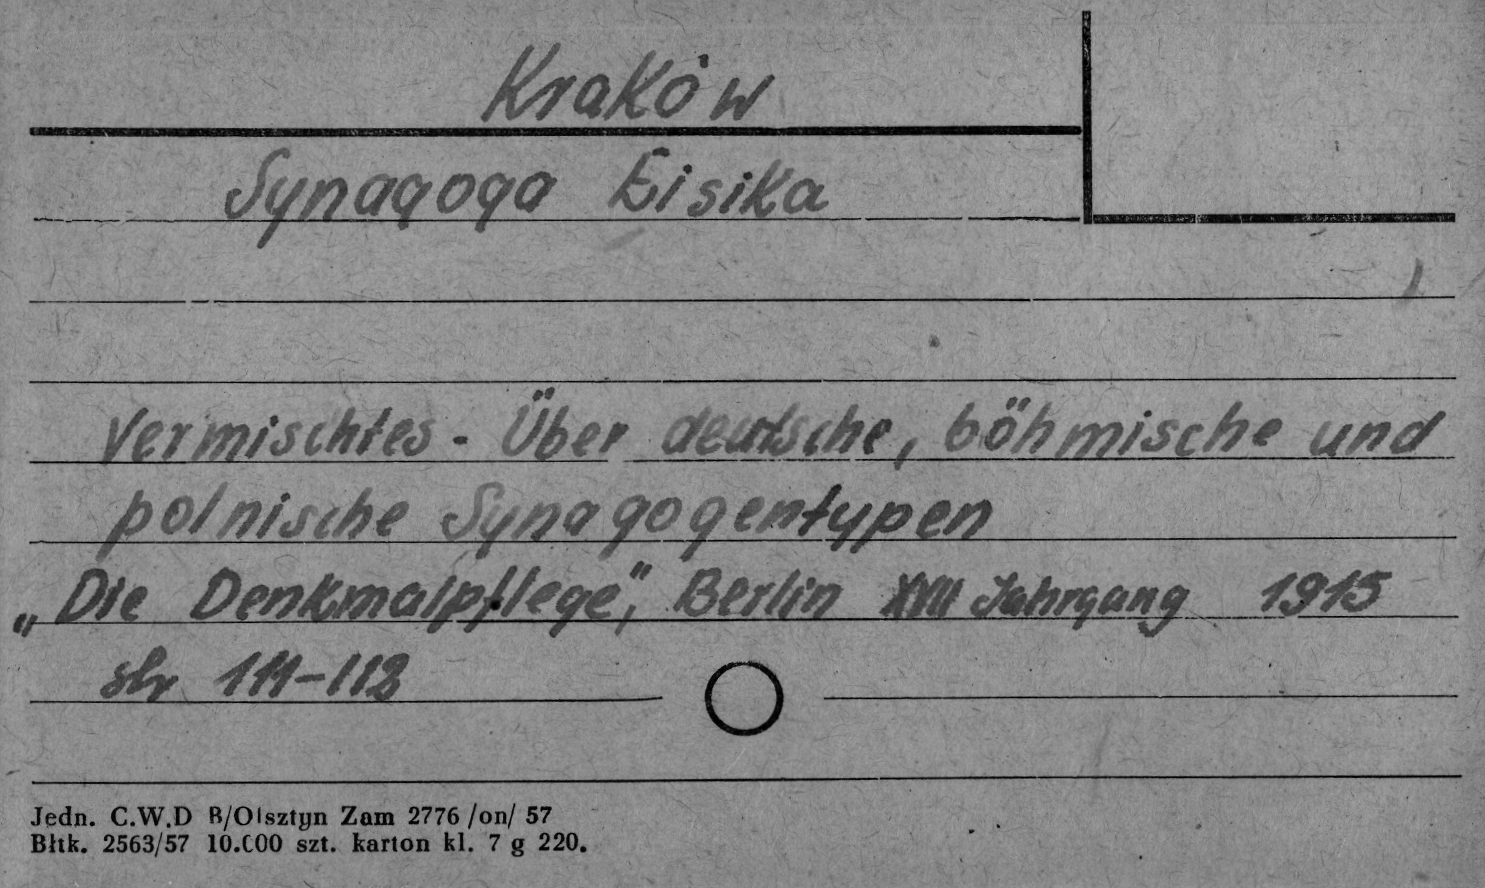 Kraków
Synagoga Eisika
Vermischtes - Über deutsche, böhmische und
polnische Synagogentypen
„Die Denkmalpflege", Berlin XVII Jahrgang 1915
str 111-112
Jedn. C.W.D B/Olsztyn Zam 2776 /on/ 57
Błtk. 2563/57 10.000 szt. karton kl. 7 g 220.